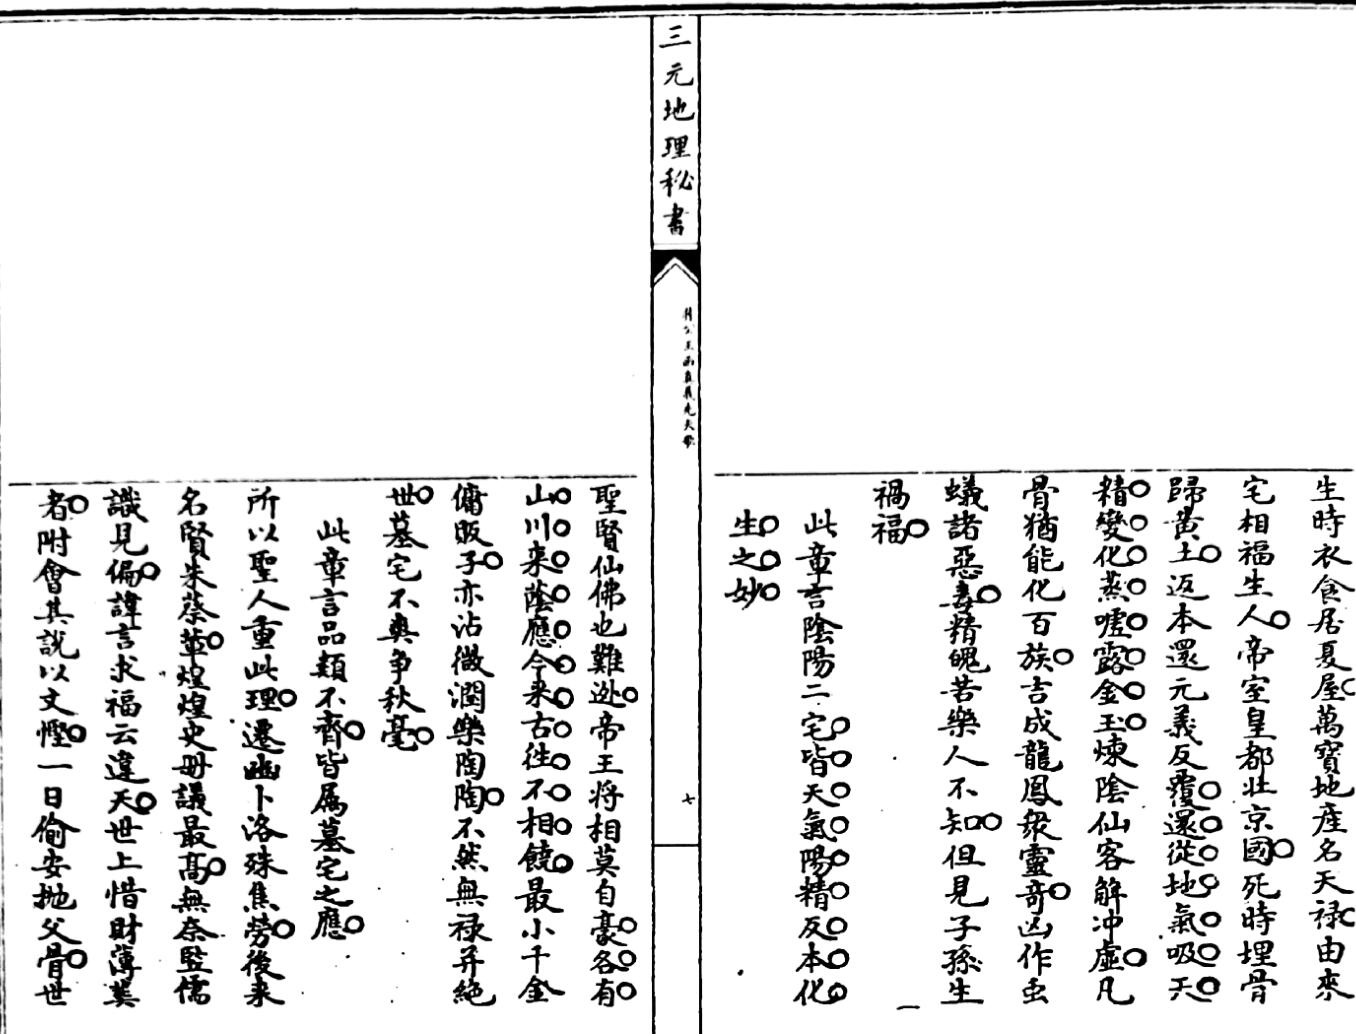 生時衣食居夏屋萬寶地產名天祿由來
宅相福生人帝室皇都壯京國死時埋骨
歸黄土返本還元義反覆還從地氣吸天
精變化蒸噓露金玉煉陰仙客解冲虛凡
骨猶能化百族吉成龍鳳衆靈奇凶作虫
蟻諸惡毒精魄苦樂人不知但見子孫生
禍福
此章言陰陽二宅皆天氣陽精反本化
生之妙
三元地理秘書
七
聖賢仙佛也難逊帝王将相莫自豪各有
山川来蔭應今来古徃不相饒最小千金
傭販子亦沾微潤樂陶陶不然無祿并絶
世墓宅不爽争秋毫
此章言品類不齊皆属墓宅之應
所以聖人重此理遷豳卜洛殊焦勞後来
名賢朱蔡輩煌煌史册議最髙無奈監儒
識見偏諱言求福云違天世上惜財薄葬
者附會其說以文慳一日偷安抛父骨世